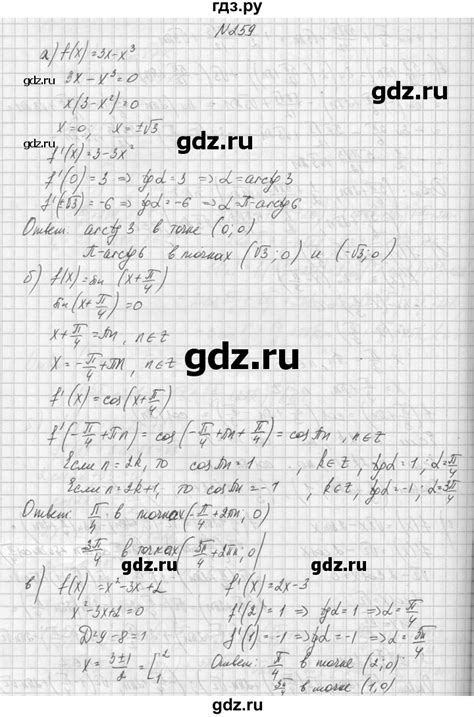 гдз.ру
№259
а) f(x)=3x-x³
3x-x³=0
x(3-x²)=0
x=0; x=±√3
f'(x)=3-3x²
f'(0)=3 ⇒ tgα=3 ⇒ α=arctg 3
f'(±√3)=-6 ⇒ tgα=-6 ⇒ α=π-arctg6
Ответ: arctg 3 в точке (0;0)
π-arctg6 в точках (√3;0) и (-√3;0)
б) f(x)=sin (x+π/4)
sin(x+π/4)=0
x+π/4=πn, n∈Z
x=-π/4+πn, n∈Z
f'(x)=cos(x+π/4)
f'(-π/4+πn)=cos(-π/4+πn+π/4)=cosπn, n∈Z
Если n=2k, то cosπn=1, k∈Z, tgα=1; α=π/4
Если n=2k+1, то cosπn=-1, k∈Z, tgα=-1; α=3π/4
Ответ: π/4 в точках(-π/4+2πn, 0)
3π/4 в точках(3π/4+2πn, 0)
в) f(x)=x²-3x+2 f'(x)=2x-3
x²-3x+2=0 f'(2)=1 ⇒ tgα=1 ⇒ α=π/4
D=9-8=1 f'(1)=-1 ⇒ tgα=-1 ⇒ α=3π/4
x=3±1/2=[2 1 Ответ: π/4 в точке (2;0)
3π/4 в точке (1,0)
gdz.ru
gdz.ru
gdz.ru
gdz.ru
gdz.ru
gdz.ru
gdz.ru
gdz.ru